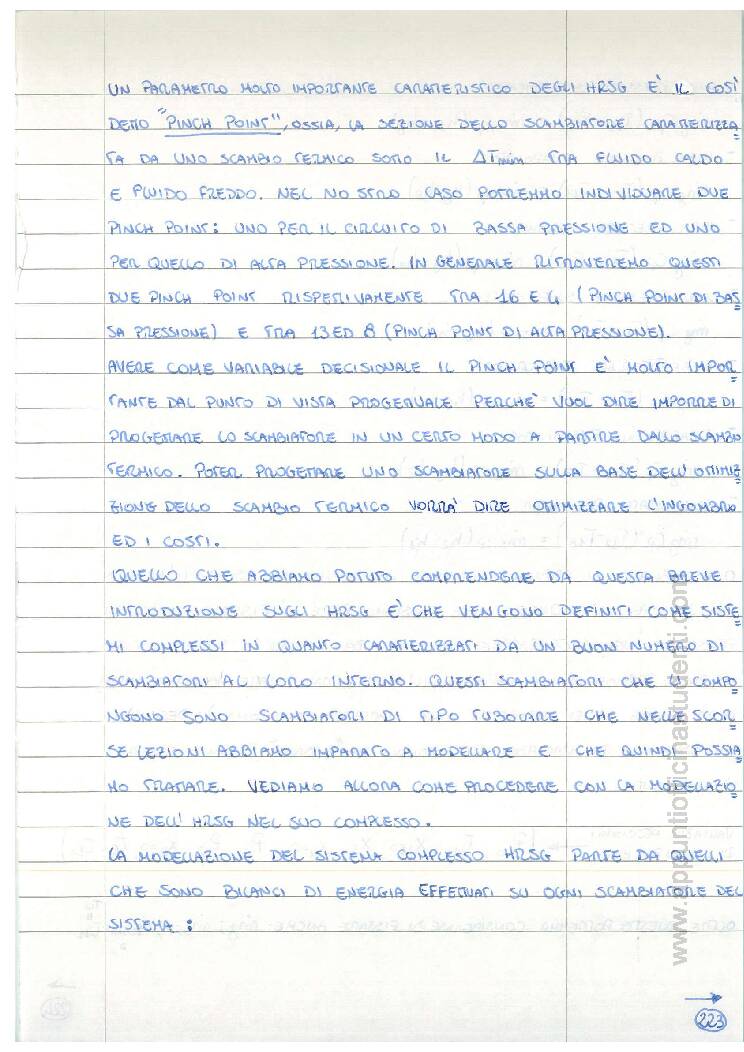 UN PARAMETRO MOLTO IMPORTANTE CARATTERISTICO DEGLI HRSG E' IL COSÌ
DETTO "PINCH POINT", OSSIA, LA SEZIONE DELLO SCAMBIATORE CARATTERIZZA
TA DA UNO SCAMBIO TERMICO SOTTO IL ΔTmin TRA FLUIDO CALDO
E FLUIDO FREDDO. NEL NOSTRO CASO POTREMMO INDIVIDUARE DUE
PINCH POINT: UNO PER IL CIRCUITO DI BASSA PRESSIONE ED UNO
PER QUELLO DI ALTA PRESSIONE. IN GENERALE RITROVEREMO QUESTI
DUE PINCH POINT RISPETTIVAMENTE TRA 16 E 4 (PINCH POINT DI BAS
SA PRESSIONE) E TRA 13 ED 8 (PINCH POINT DI ALTA PRESSIONE).
AVERE COME VARIABILE DECISIONALE IL PINCH POINT E' MOLTO IMPOR
TANTE DAL PUNTO DI VISTA PROGETTUALE PERCHE' VUOL DIRE IMPORRE DI
PROGETTARE LO SCAMBIATORE IN UN CERTO MODO A PARTIRE DALLO SCAMBIO
TERMICO. POTER PROGETTARE UNO SCAMBIATORE SULLA BASE DELL'OTTIMIZ
ZIONE DELLO SCAMBIO TERMICO VORRA' DIRE OTTIMIZZARE L'INGOMBRO
ED I COSTI.
QUELLO CHE ABBIAMO POTUTO COMPRENDERE DA QUESTA BREVE
INTRODUZIONE SUGLI HRSG E' CHE VENGONO DEFINITI COME SISTE
MI COMPLESSI IN QUANTO CARATTERIZZATI DA UN BUON NUMERO DI
SCAMBIATORI AL LORO INTERNO. QUESTI SCAMBIATORI CHE LI COMPO
NGONO SONO SCAMBIATORI DI TIPO TUBOLARE CHE NELLE SCOR
SE LEZIONI ABBIAMO IMPARATO A MODELLARE E CHE QUINDI POSSIA
MO TRATTARE. VEDIAMO ALLORA COME PROCEDERE CON LA MODELLAZIO
NE DELL'HRSG NEL SUO COMPLESSO.
LA MODELLAZIONE DEL SISTEMA COMPLESSO HRSG PARTE DA QUELLI
CHE SONO BILANCI DI ENERGIA EFFETTUATI SU OGNI SCAMBIATORE DEL
SISTEMA:
www.appuntiofficinastudenti.com
223